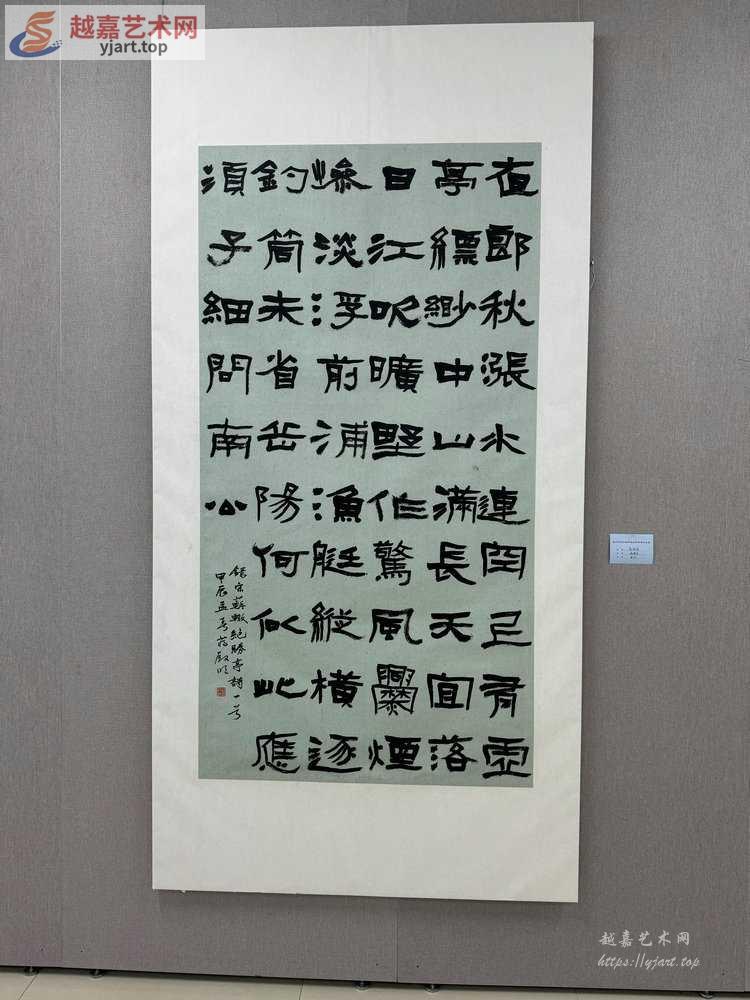 夜郎秋漲水連空上有虛
亭縹緲中山滿長天宜落
日江吹曠野作驚風爨煙
慘淡浮前浦漁艇縱橫逐
釣筒未省岳陽何似此應
須子細問南公
錄宋蘇轍絕勝亭詩一首
甲辰孟春
越嘉艺术网
yjart.top
越嘉艺术网
https://yjart.top